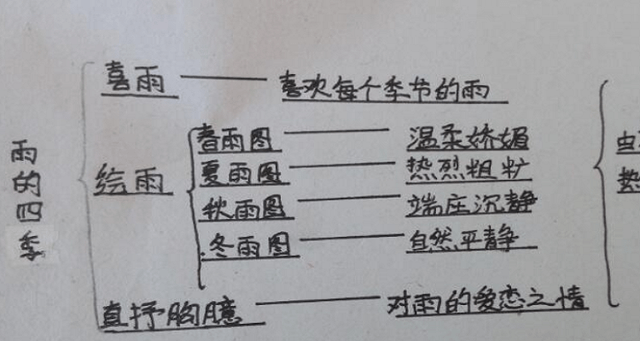 雨的四季
喜雨 喜欢每个季节的雨
绘雨
春雨图 温柔娇媚
夏雨图 热烈粗犷
秋雨图 端庄沉静
冬雨图 自然平静
直抒胸臆 对雨的爱恋之情
热